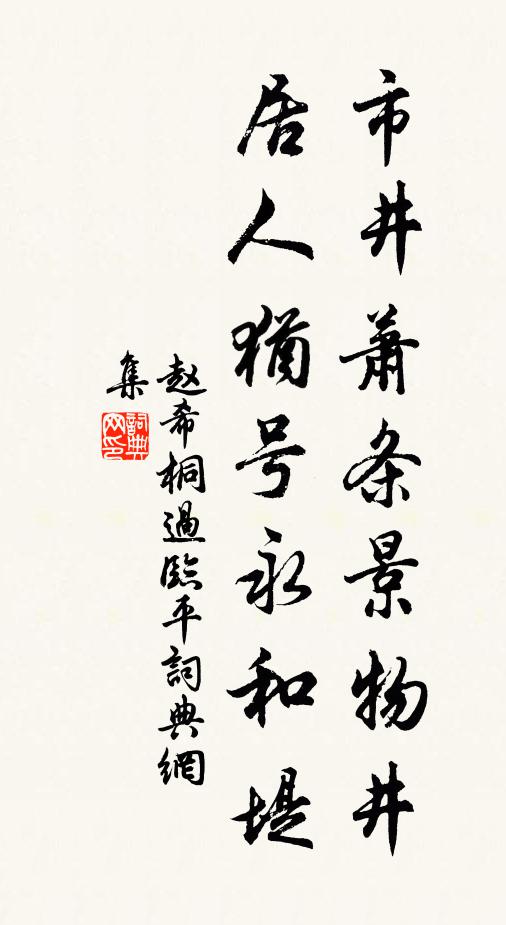 市井萧条景物井
居人犹号永和堤
赵希桐過臨平詞典網
集
詞典網印